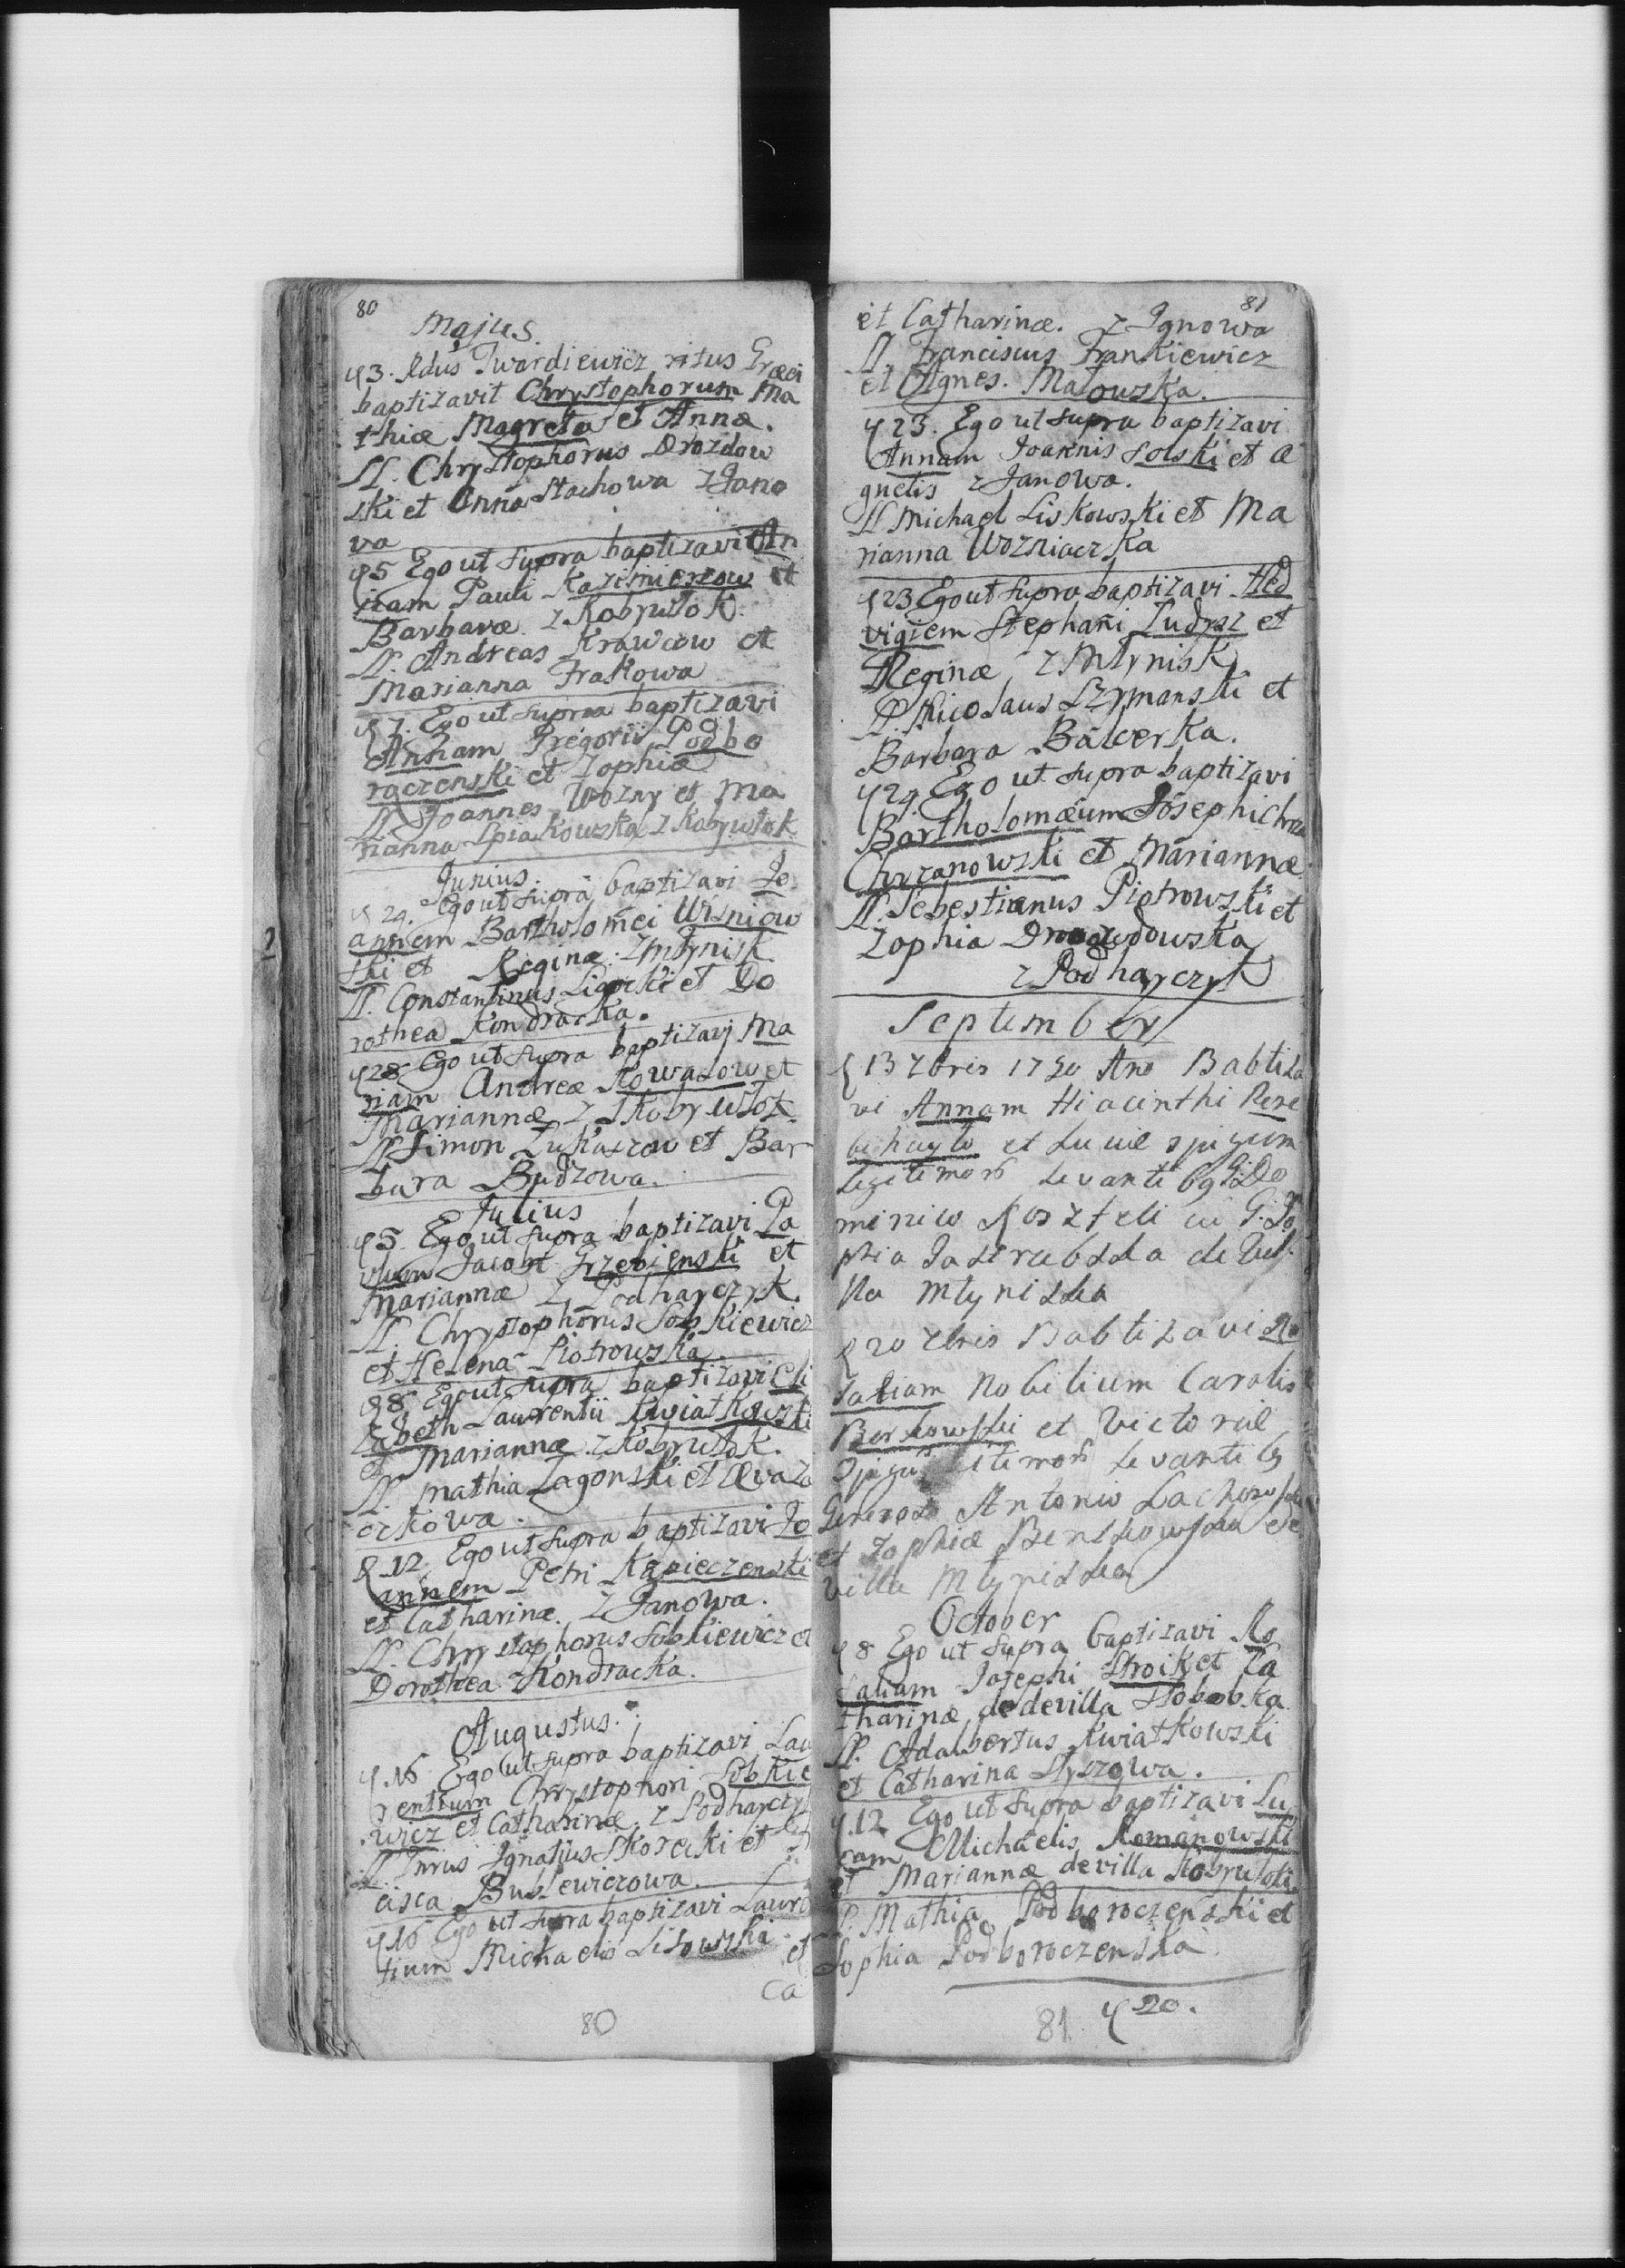 80
Majus
3. Adus Twardiewicz ritus Græci
baptizavit Chrystophorum Ma
thiæ Magreta et Annæ.
LL. Chrystophorus Drozdow
ski et Anna Stachowa z Jano
va
5 Ego ut supra baptizavi An
nam Pauli Kazimierzow et
Barbaræ z Kobyłwłok.
LL. Andreas Krawcow et
Marianna Frakowa
7. Ego ut supra baptizavi
Annam Gregorii Podbo
raczenski et Zophiæ
LL Joannes Wozny et Ma
rianna Spiakowska z Kobywłok
Junius.
24. Ego ut supra baptizavi Jo
annem Bartholomei Wisniow
ski et Reginæ z Młynisk
LL. Constantinus Ligocki et Do
rothea Kondracka.
28 Ego ut supra baptizavi Ma
riam Andreæ Kowalow et
Mariannæ z Kobywłok
LL Simon Łukaszow et Bar
bara Budzowa.
Julius
5. Ego ut supra baptizavi Pa
ulum Jacobi Grzebienski et
Mariannæ z Podhayczyk.
LL. Chrystophorus Sobkiewicz
et Helena Piotrowska
8. Ego ut supra baptizavi Eli
zabeth Laurentii Kwiatkowski
et Mariannæ z Kobywłok.
LL. Mathia Zagorski et Eva
ckowa.
12 Ego ut supra baptizavi Jo
annem Petri Kapieczenski
et Catharinæ z Janowa.
LL. Chrystophorus Sobkiewicz et
Dorothea Kondracka.
Augustus.
16 Ego ut supra baptizavi Lau
rentium Chrystophori Sobkie
wicz et Catharinæ z Podhayczyk
LL Ignatius Skorecki et
cisca Buslewiczowa.
16 Ego ut supra baptizavi Lauren
tium Michaelis Lisowski et
Ca
80
81
et Catharinæ. z Jgnowa
LL. Franciscus Frankiewicz
et Agnes. Małowska.
23. Ego ut supra baptizavi
Annam Joannis Solski et A
gnetis z Janowa.
LL Michael Liskowski et Ma
rianna Wozniaczka
23 Ego ut supra baptizavi Hed
vigiem Stephani Łudysz et
Reginæ z Młynisk
LL Nicolaus Szymanski et
Barbara Balcerka.
24 Ego ut supra baptizavi
Bartholomæum Josephi Chrza
Chrzanowski et Mariannæ
LL. Sebestianus Piotrowski et
Zophia Drozdowska
z Podhayczyk
September
13 7bris 1750 Ano Babtiza
vi Annam Hiacinthi Pere
et Luciæ
legitimor levantibq
minico
Młyniska
20 7bris Babtizavi Ro
saliam Nobilium Carolis
Berkowski et Victoriæ
levantib
Generoso Antonio Lachowski
et Zophiæ Benskowska de
villa Młyniska
October
8 Ego ut supra baptizavi Ro
saliam Josephi Stroik et Ca
tharinæ de devilla Słobobka
LL. Adalbertus Kwiatkowski
et Catharina Słyszowa.
12 Ego ut supra baptizavi Lu
cam Michaelis Romanowski
et Mariannæ de villa Kobywłoki
LL. Mathia Podboroczenski et
Sophia Podboroczenska
20.
81